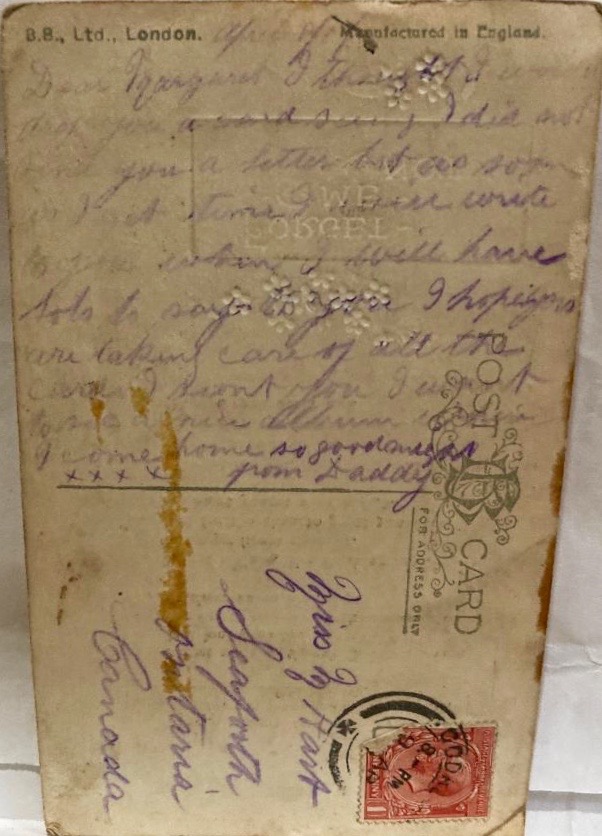 B.B., Ltd., London.
Manufactured in England.
Dear Margaret I thought I
drop you a card seing I did not
you a letter but as soon
as I get time I will write
to you when I will have
lots to say to you I hope you
are taking care of all the
cards I sent you I want
to see a nice album when
I come home so goodnight
x x x x from Daddy
POST CARD
BB
FOR ADDRESS ONLY
Miss M Hart
Seaforth
Ontario
Canada
LEST
WE
FORGET